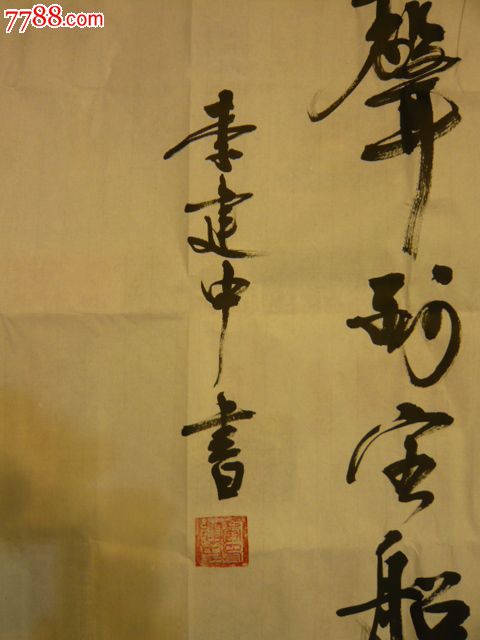 7788.com
7788.com
聲到客船
李建中書